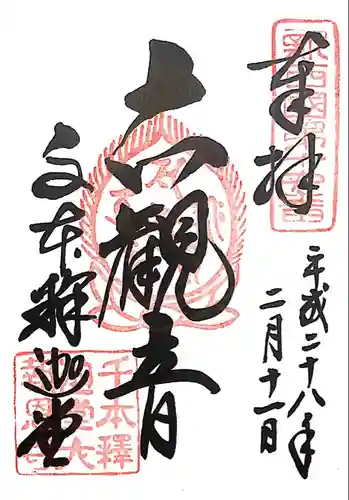 奉拝
平成二十八年
二月十一日
六観音
千本釋迦堂
千本釋
迦堂大
報恩寺